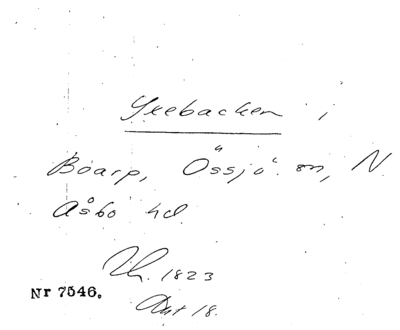 Svebacken i
Boarp, Össjö sn, N
Åsbo hd.
1823
Nr 7546.
Akt 18.